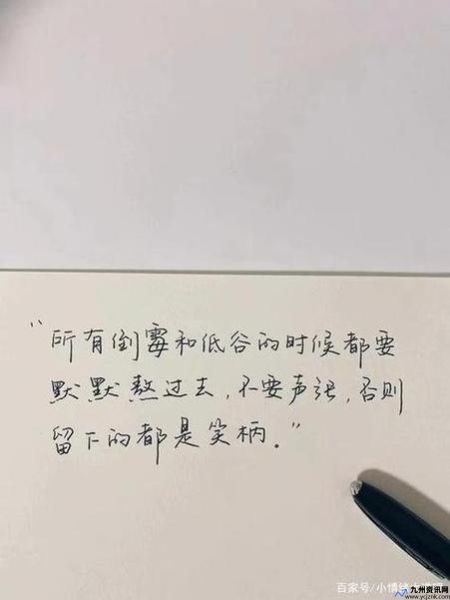 “所有倒霉和低谷的时候都要
默默熬过去，不要声张，否则
留下的都是笑柄.”
百家号/小情绪
九州资讯网
www.ycjznk.com